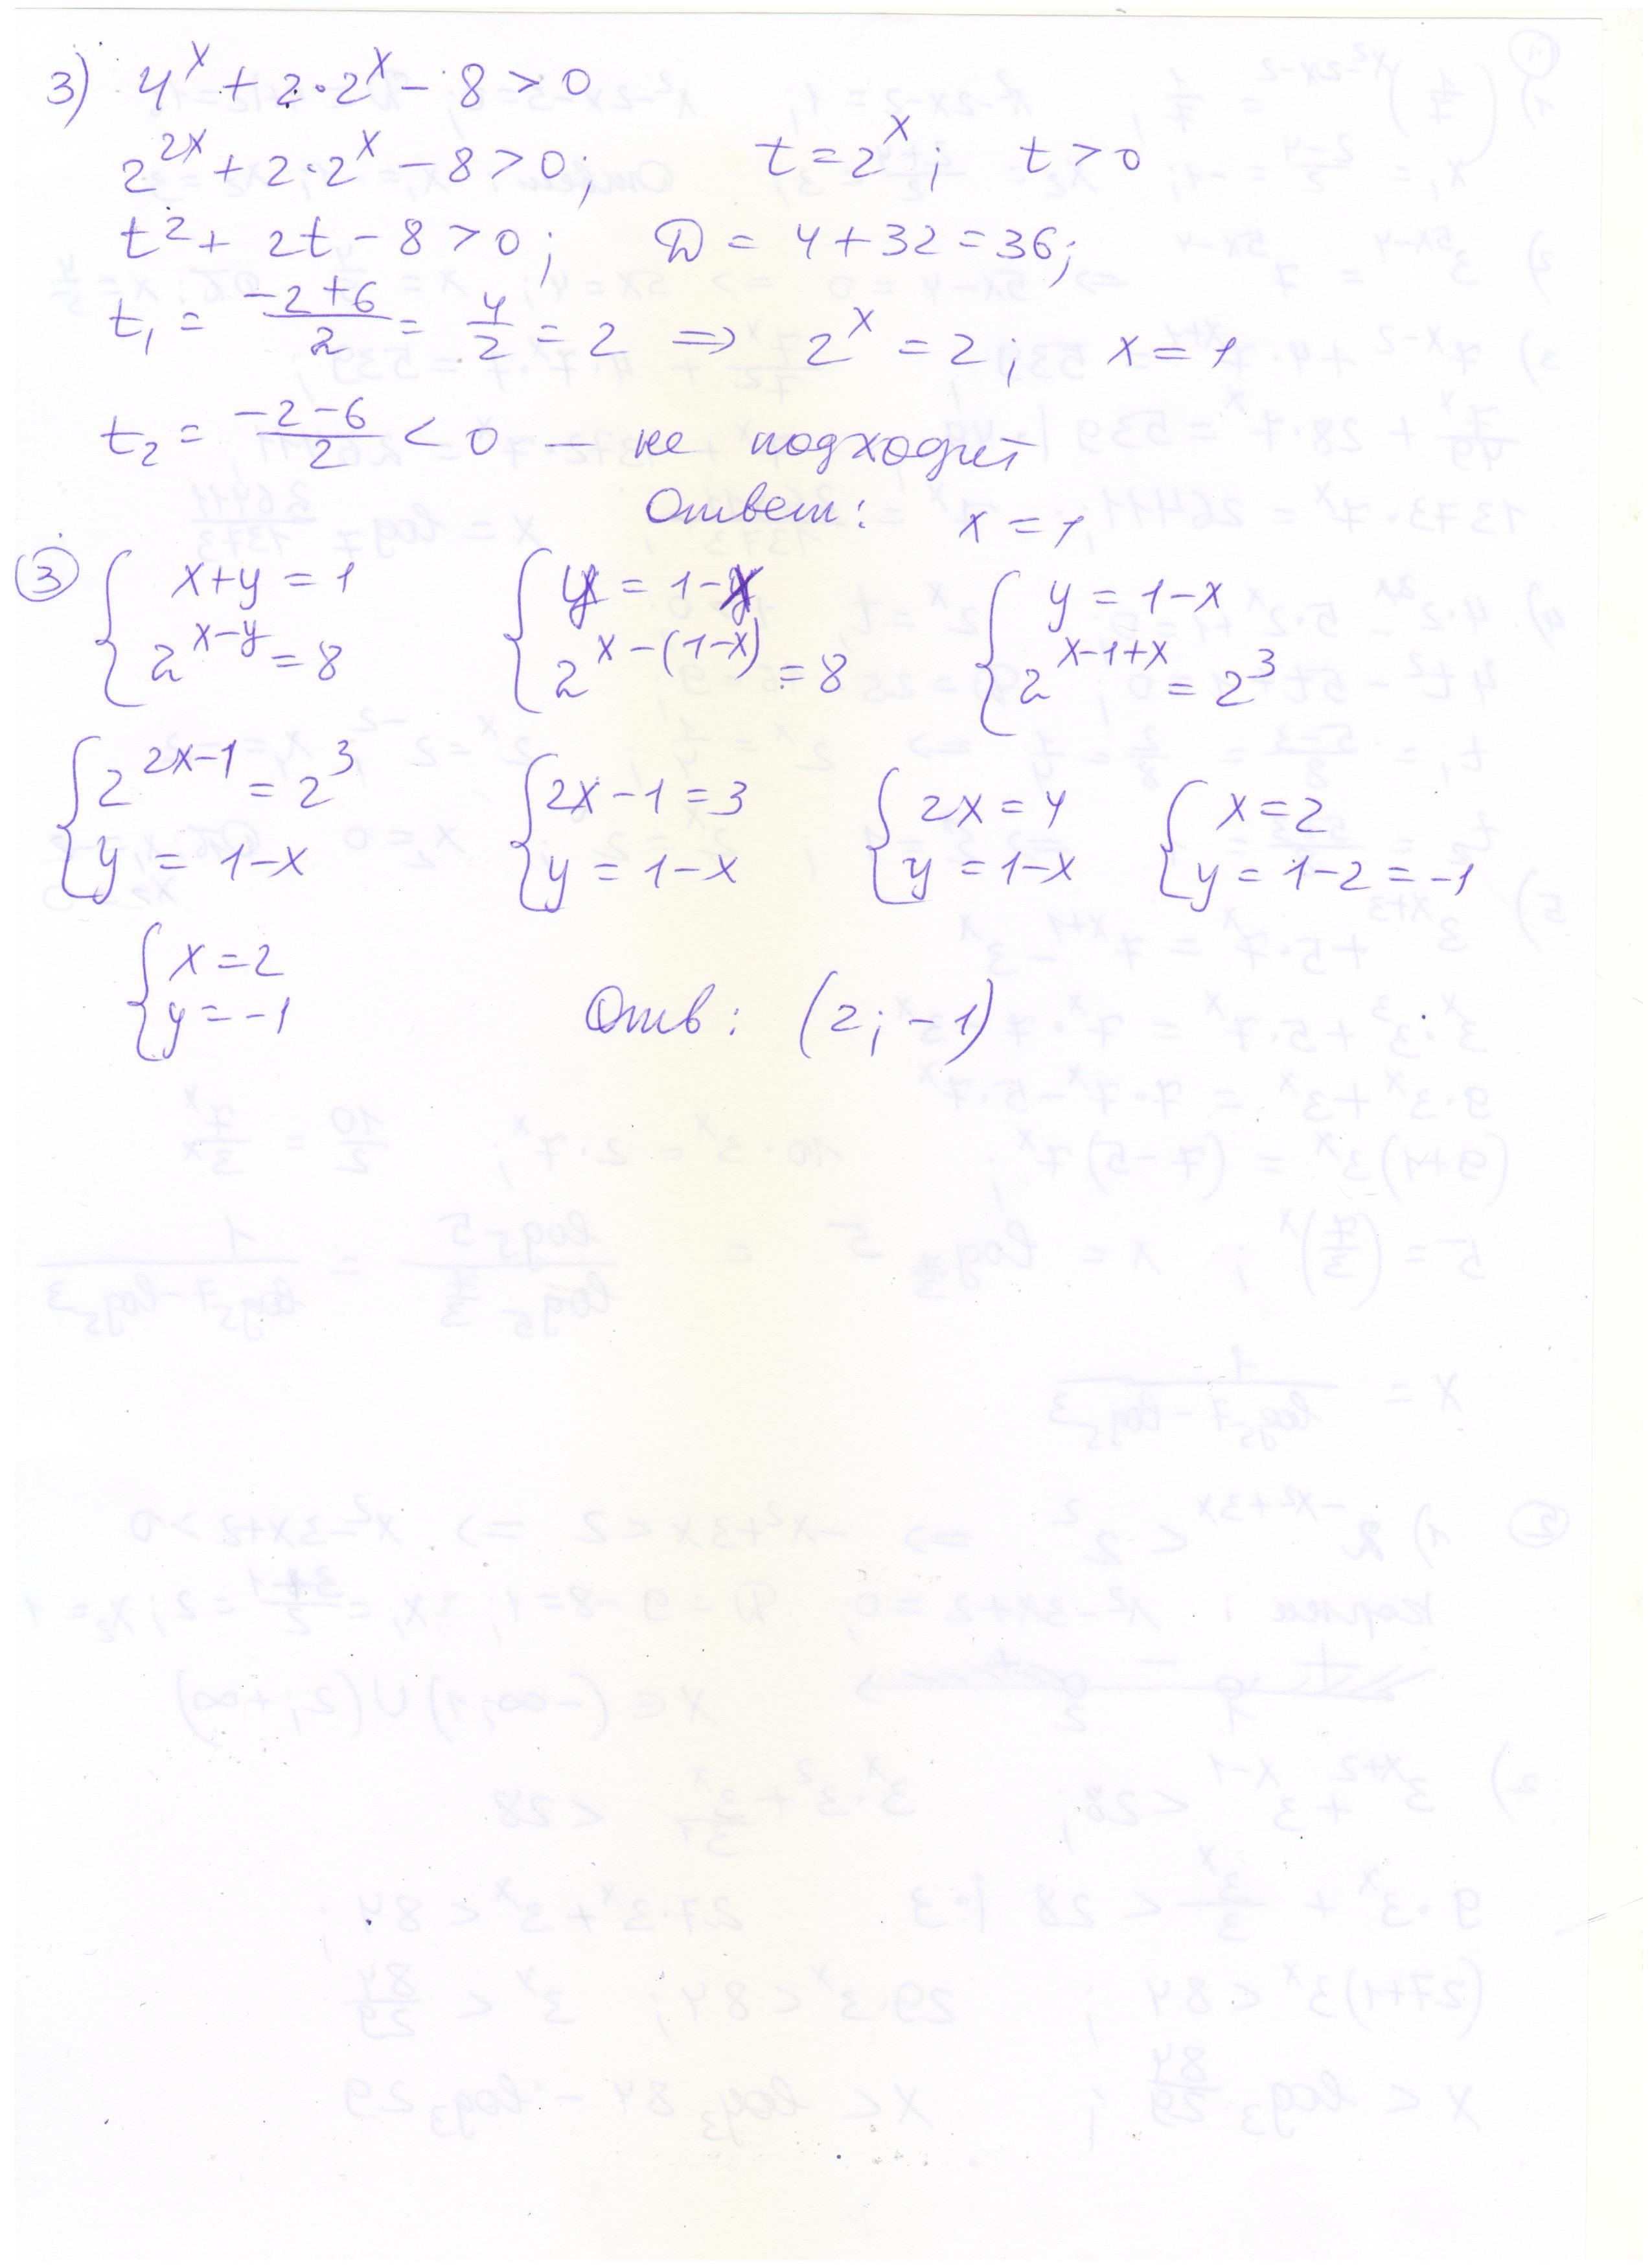 3) 4^x + 2·2^x - 8 > 0
2^{2x} + 2·2^x - 8 > 0; t = 2^x; t > 0
t² + 2t - 8 > 0; D = 4 + 32 = 36;
t₁ = \frac{-2+6}{2} = \frac{4}{2} = 2 ⇒ 2^x = 2; x = 1
t₂ = \frac{-2-6}{2} < 0 — не подходит
Ответ: x = 1
③ { x+y = 1 { y = 1-x { y = 1-x
2^{x-y} = 8 2^{x-(1-x)} = 8 2^{x-1+x} = 2³
{ 2^{2x-1} = 2³ { 2x-1 = 3 { 2x = 4 { x = 2
y = 1-x y = 1-x y = 1-x y = 1-2 = -1
{ x = 2
y = -1 Отв: (2; -1)